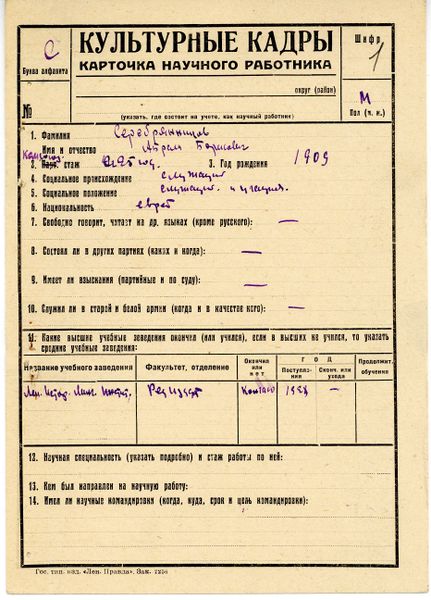 С
Буква алфавита
КУЛЬТУРНЫЕ КАДРЫ
КАРТОЧКА НАУЧНОГО РАБОТНИКА
Шифр
1
округ (район)
№
(указать, где состоит на учете, как научный работник)
М
Пол (м. и.)
1. Фамилия
Имя и отчество Абрам Борисович
стаж 3. Год рождения 1909
4. Социальное происхождение служащий
5. Социальное положение служащий и учащийся.
6. Национальность еврей
7. Свободно говорит, читает на др. языках (кроме русского): —
8. Состоял ли в других партиях (каких и когда): —
9. Имеет ли взыскания (партийные и по суду): —
10. Служил ли в старой и белой армии (когда и в качестве кего): —
11. Какие высшие учебные заведения окончил (или учился), если в высших не учился, то указать
средние учебные заведения:
Название учебного заведения
Факультет, отделение
Окончил или нет
ГОД
Поступления
Оконч. или ухода
Продолжит. обучения
Лен. Истор. Линг. Инст. 1928 —
12. Научная специальность (указать подробно) и стаж работы по ней:
13. Кем был направлен на научную работу:
14. Имел ли научные командировки (когда, куда, срок и цель командировки):
Гос. тип. изд. «Лен. Правда». Зак.